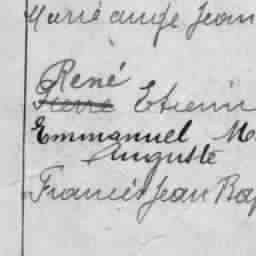 Marie ange Jean
René
Pierre Etienn
Emmanuel M
Auguste
Francis Jean Bap